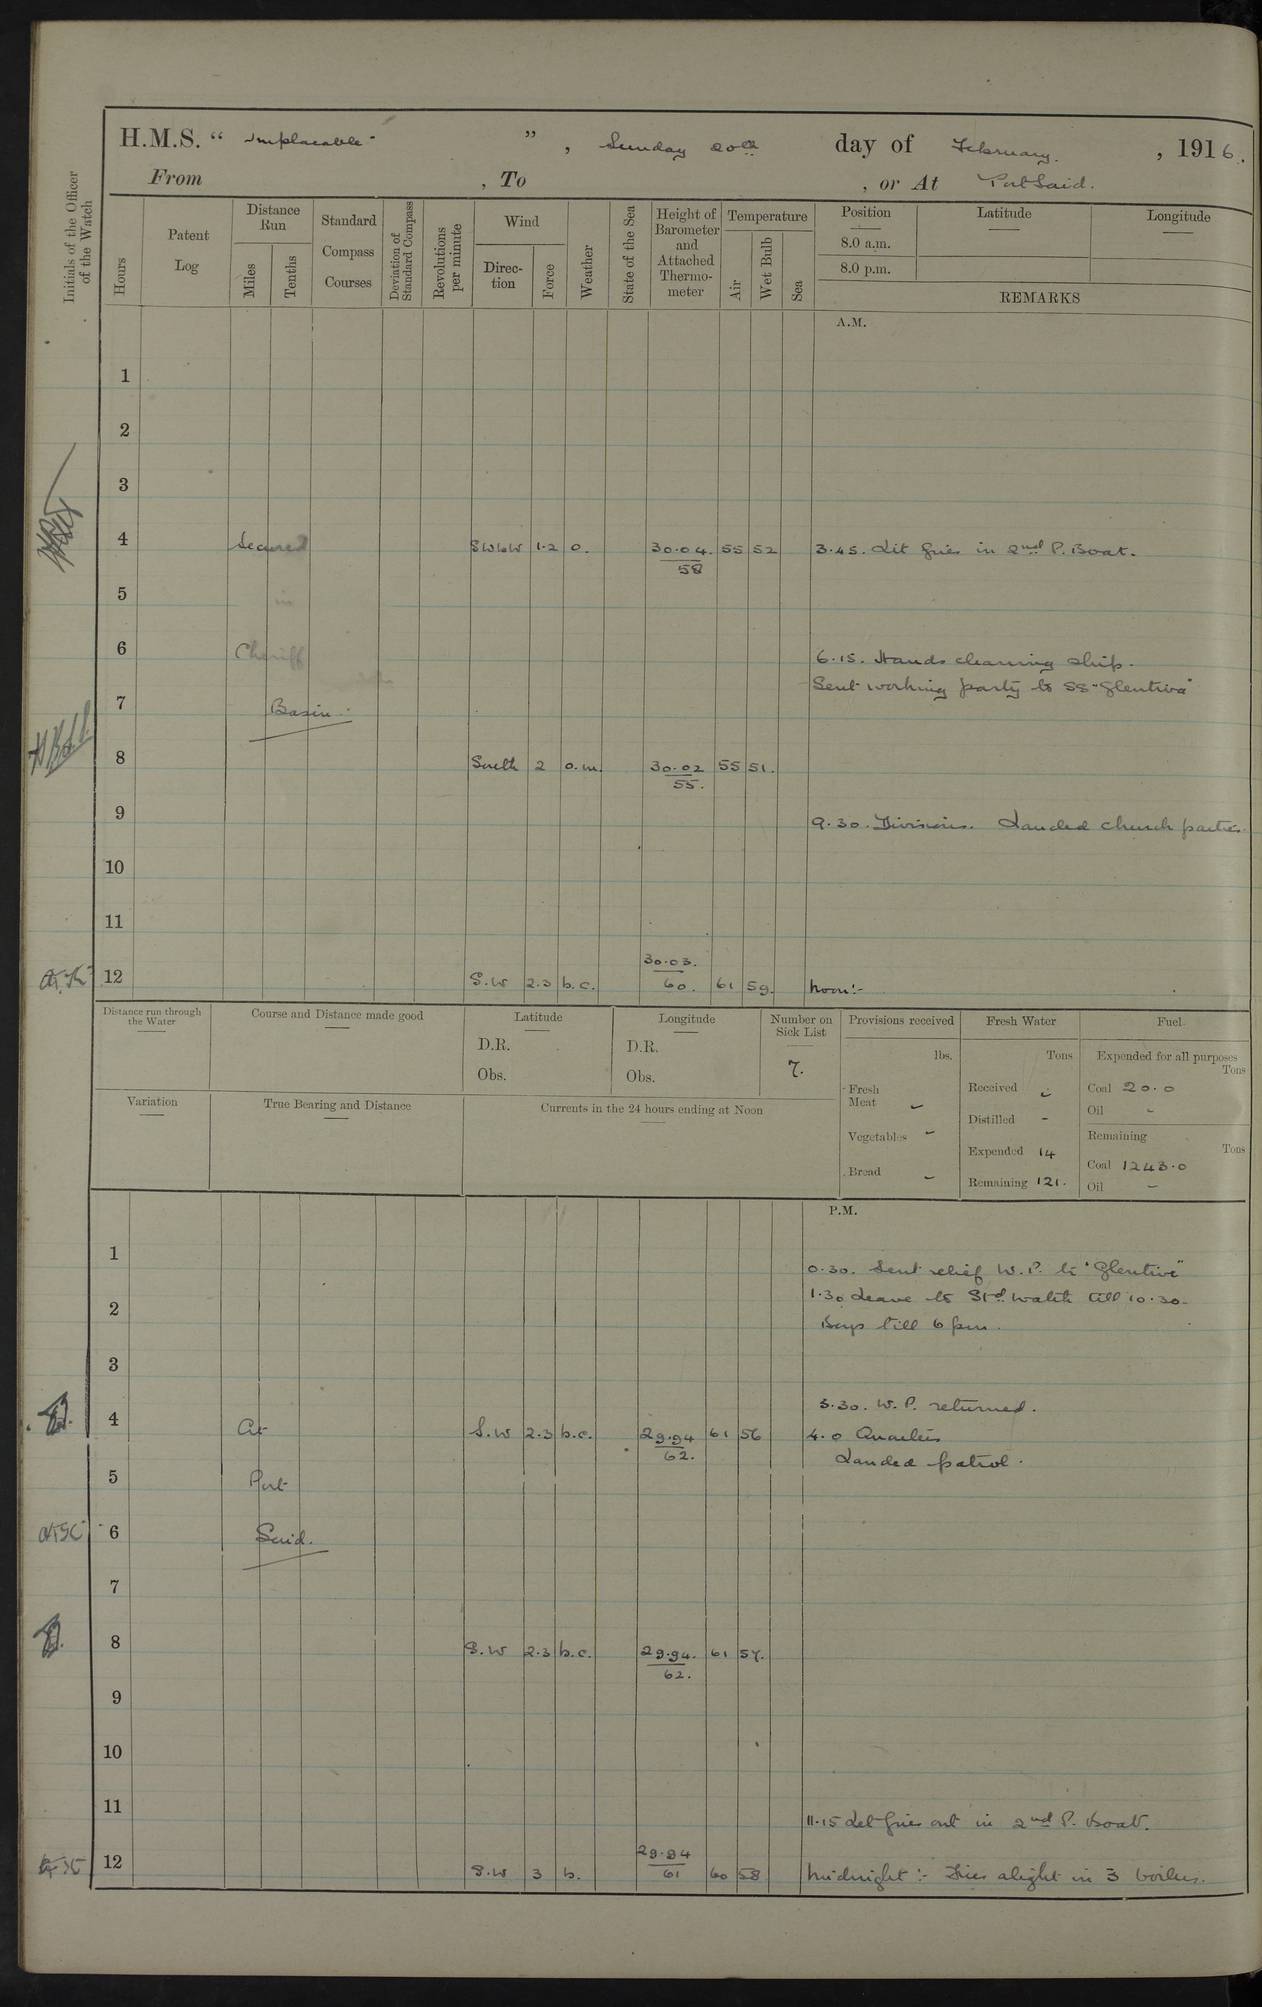 H.M.S. “ Implacable ” , Sunday 20th day of February. , 1916.
From , To , or At Port Said.
Initials of the Officer of the Watch
Hours
Patent Log
Distance Run
Miles
Tenths
Standard Compass Courses
Deviation of Standard Compass
Revolutions per minute
Wind
Direction
Force
Weather
State of the Sea
Height of Barometer and Attached Thermometer
Temperature
Air
Wet Bulb
Sea
Position
8.0 a.m.
8.0 p.m.
Latitude
Longitude
REMARKS
A.M.
1
2
3
4 Secured SWbW 1.2 o. 30.04. 58 55 52 3.45. Lit fires in 2nd P. Boat.
5 in
6 Cheriff 6.15. Hands cleaning ship.
Sent working party to SS "Glentiva"
7 Basin.
8 South 2 o.m. 30.02 55. 55 51.
9 9.30. Divisions. Landed church parties.
10
11
12 S.W 2.3 b.c. 30.03. 60. 61 59. Noon:-
Distance run through the Water
Course and Distance made good
Latitude
D.R.
Obs.
Longitude
D.R.
Obs.
Number on Sick List
7.
Provisions received
lbs.
Fresh Meat -
Vegetables -
Bread -
Fresh Water
Tons
Received -
Distilled -
Expended 14
Remaining 121.
Fuel
Expended for all purposes
Tons
Coal 20.0
Oil -
Remaining
Tons
Coal 1243.0
Oil -
Variation
True Bearing and Distance
Currents in the 24 hours ending at Noon
P.M.
1 0.30. Sent relief W.P. to "Glentive"
1.30 Leave to Stbd. watch till 10.30.
2 Boys till 6 pm.
3
3.30. W.P. returned.
4 At S.W 2.3 b.c. 29.94 62. 61 56 4.0 Quarters
Landed patrol.
5 Port
6 Said.
7
8 S.W 2.3 b.c. 29.94. 62. 61 57.
9
10
11 11.15 Let fires out in 2nd P. Boat.
12 S.W 3 b. 29.94 61 60 58 Midnight:- Fires alight in 3 boilers.